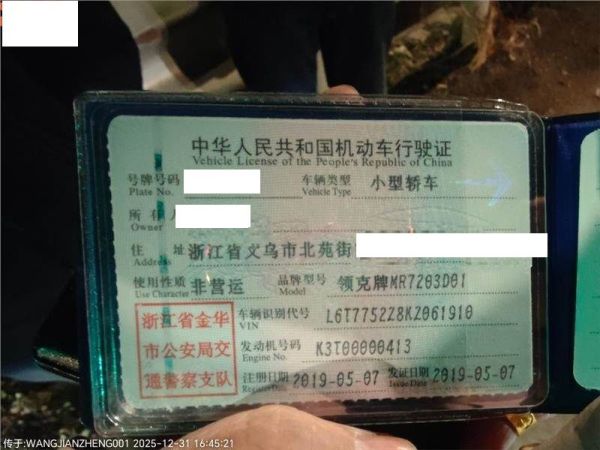 中华人民共和国机动车行驶证
Vehicle License of the People's Republic of China
号牌号码 车辆类型 小型轿车
Plate No. Vehicle Type
所有人
Owner
住 址 浙江省义乌市北苑街
Address
使用性质 非营运 品牌型号 领克牌MR7203D01
Use Character Model
浙江省金华
市公安局交
通警察支队
车辆识别代号 L6T7752Z8KZ061910
VIN
发动机号码 K3T00000413
Engine No.
注册日期 2019-05-07 发证日期 2019-05-07
Register Date Issue Date
传于:WANGJIANZHENG001 2025-12-31 16:45:21